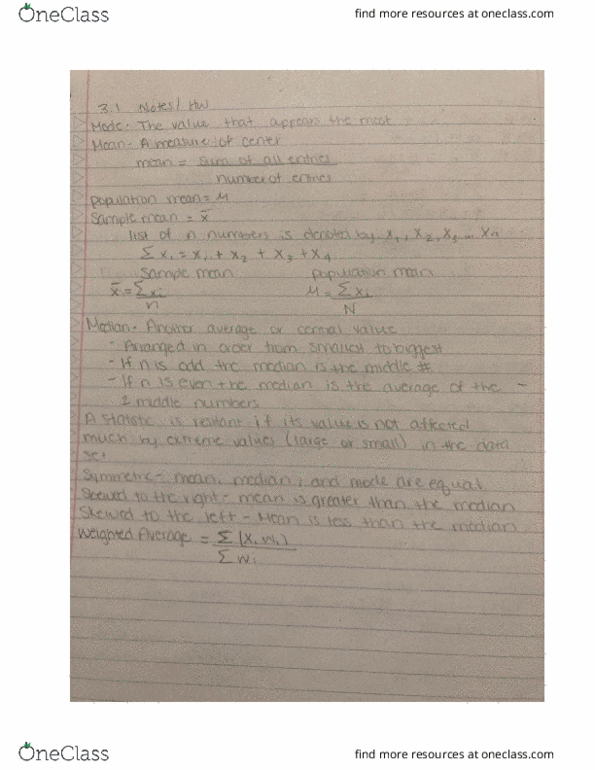 OneClass
find more resources at oneclass.com
3.1 Notes/HW
Mode- The value that appears the most
Mean- A measure of center
mean = sum of all entries
number of entries
population mean = μ
Sample mean = x̄
list of n numbers is denoted by x₁, x₂, x₃ ... xₙ
Σxᵢ = x₁ + x₂ + x₃ + x₄
Sample mean population mean
x̄ = Σxᵢ μ = Σxᵢ
n N
Median- Another average or central value
- Arranged in order from smallest to biggest
- If n is odd the median is the middle #
- If n is even the median is the average of the -
2 middle numbers
A statistic is resitant if its value is not affected
much by extreme values (large or small) in the data
set
Symmetric- mean, median, and mode are equal
Skewed to the right- mean is greater than the median
Skewed to the left - Mean is less than the median
Weighted Average = Σ(xᵢ wᵢ)
Σ wᵢ
OneClass
find more resources at oneclass.com